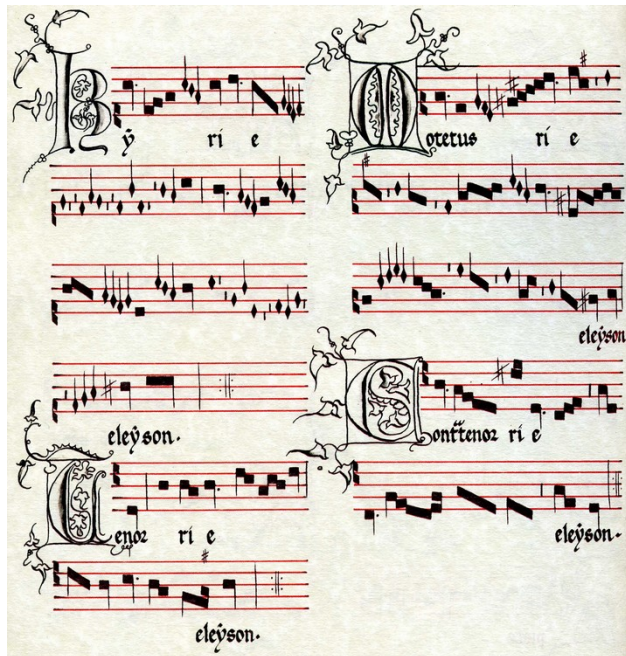 Kÿ rie
eleÿson.
Tenor rie
eleÿson.
Motetus rie
eleÿson
Conttenor rie
eleÿson.